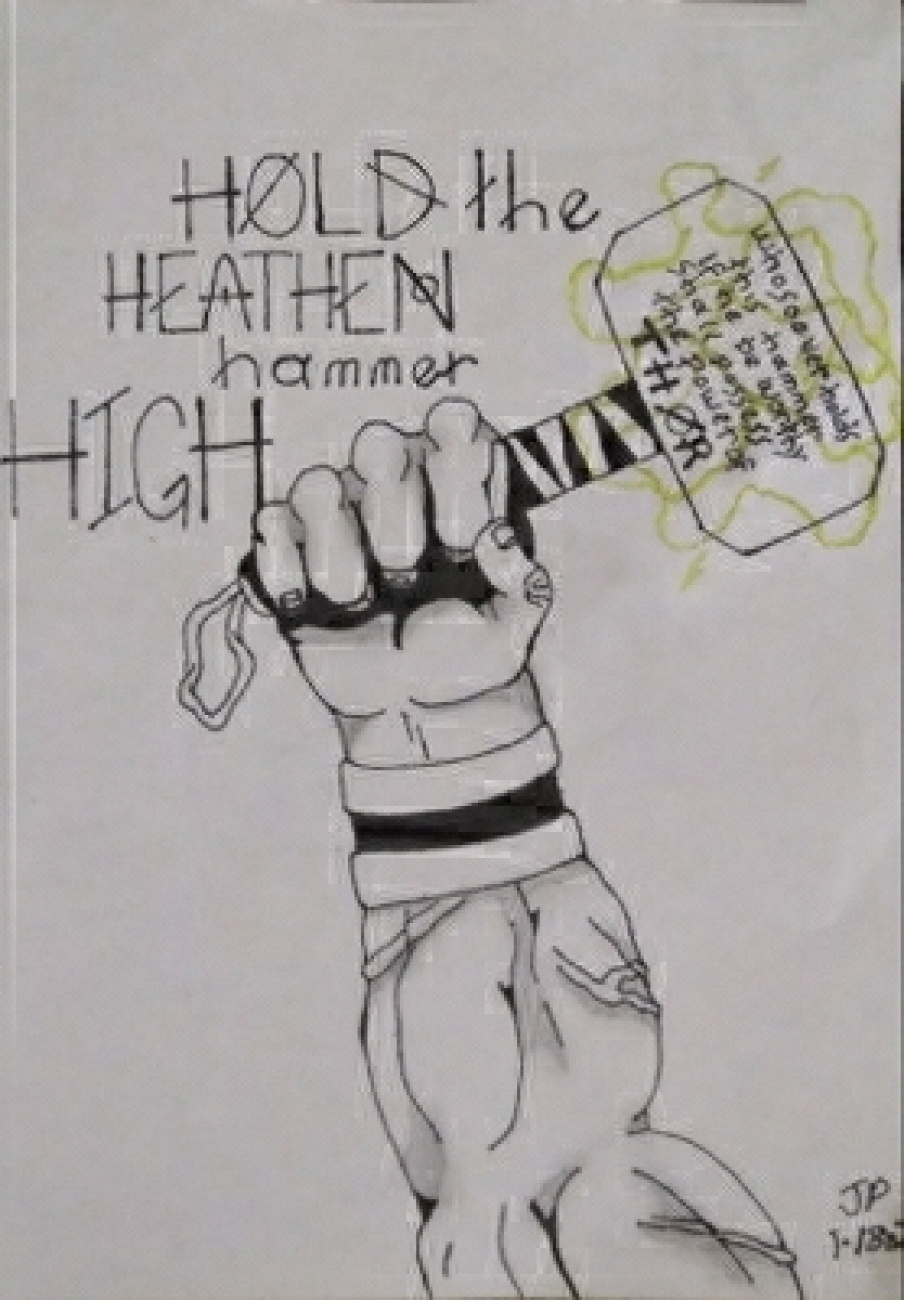 HØLD the
HEATHEN
hammer
HIGH
Whosoever holds
this hammer
if he be worthy
shall possess
the power of
THØR
JP